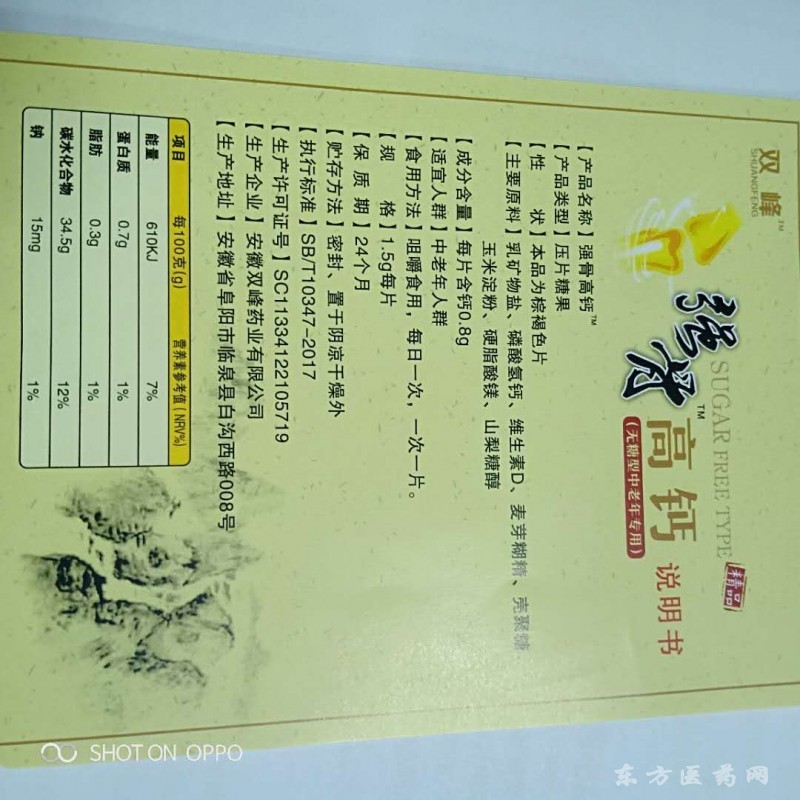 双峰™
SHUANGFENG
强骨™
SUGAR FREE TYPE
高钙
精品
说明书
(无糖型中老年专用)
【产品名称】强骨高钙™
【产品类型】压片糖果
【性 状】本品为棕褐色片
【主要原料】乳矿物盐、磷酸氢钙、维生素D、麦芽糊精、壳聚糖
玉米淀粉、硬脂酸镁、山梨糖醇
【成分含量】每片含钙0.8g
【适宜人群】中老年人群
【食用方法】咀嚼食用，每日一次，一次一片。
【规 格】1.5g每片
【保 质 期】24个月
【贮存方法】密封、置于阴凉干燥外
【执行标准】SB/T10347-2017
【生产许可证号】SC11334122105719
【生产企业】安徽双峰药业有限公司
【生产地址】安徽省阜阳市临泉县白沟西路008号
项目 每100克(g) 营养素参考值(NRV%)
能量 610KJ 7%
蛋白质 0.7g 1%
脂肪 0.3g 1%
碳水化合物 34.5g 12%
钠 15mg 1%
SHOT ON OPPO
东方医药网